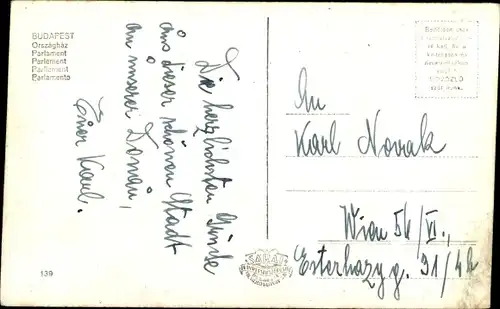 BUDAPEST
Országház
Parlament
Parlement
Parliament
Parlamento
Die herzlichsten Grüße
aus dieser schönen Stadt
an unserer Donau,
Euer Karl.
An
Karl Novak
Wien 56/VI.,
Esterhazyg. 31/4h
139